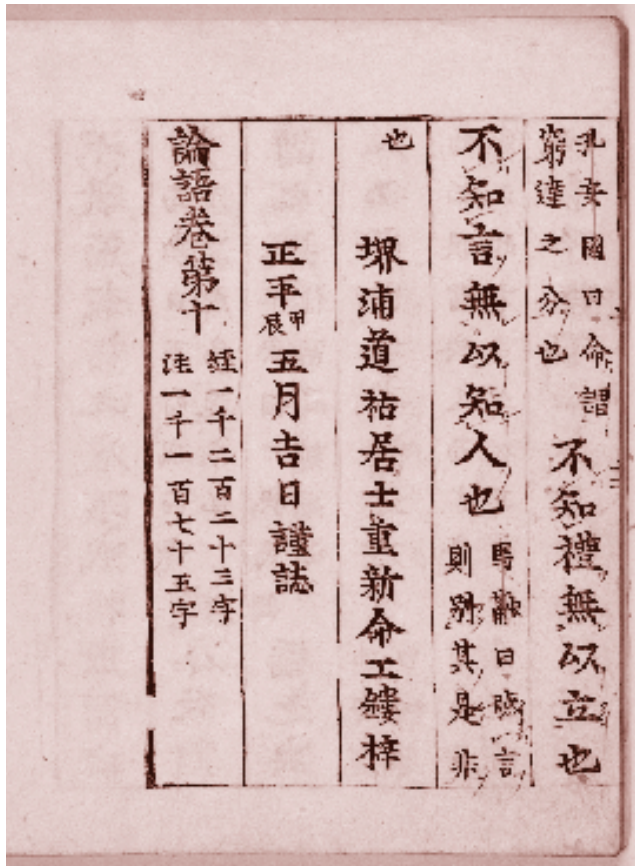 孔安國曰命謂
窮達之分也
不知禮無以立也
不知言無以知人也
馬融曰聽言
則別其是非
也
堺浦道祐居士重新命工鏤梓
正平甲辰五月吉日謹誌
論語卷第十
經一千二百二十三字
注一千一百七十五字